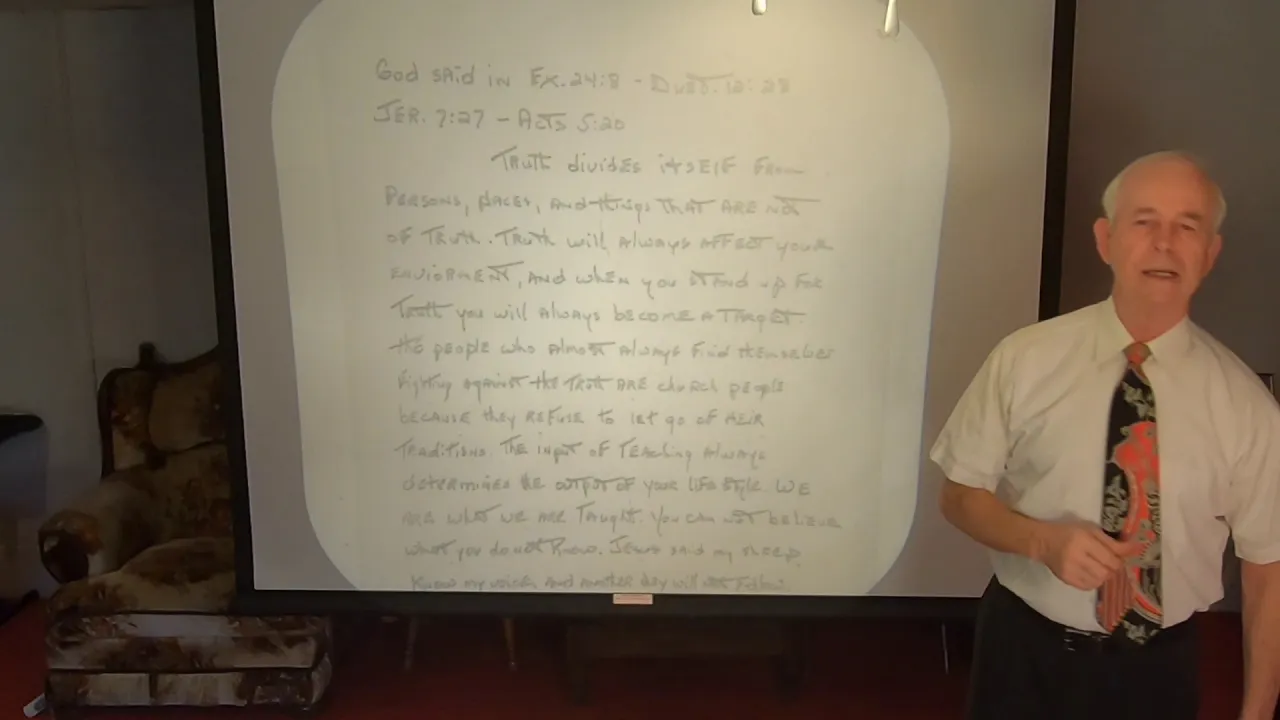 God said in Ex. 24:8 - Duet. 12:28
JER. 7:27 - Acts 5:20
Truth divides itself From
Persons, places, and things that are not
of Truth. Truth will always affect your
enviorment, and when you stand up for
Truth you will always become a target.
the people who almost always find themselves
fighting against the truth are church people
because they refuse to let go of their
traditions. The input of teaching always
determines the output of your life style. We
are what we are taught. You can not believe
what you do not know. Jesus said my sheep
know my voice, and another they will not follow